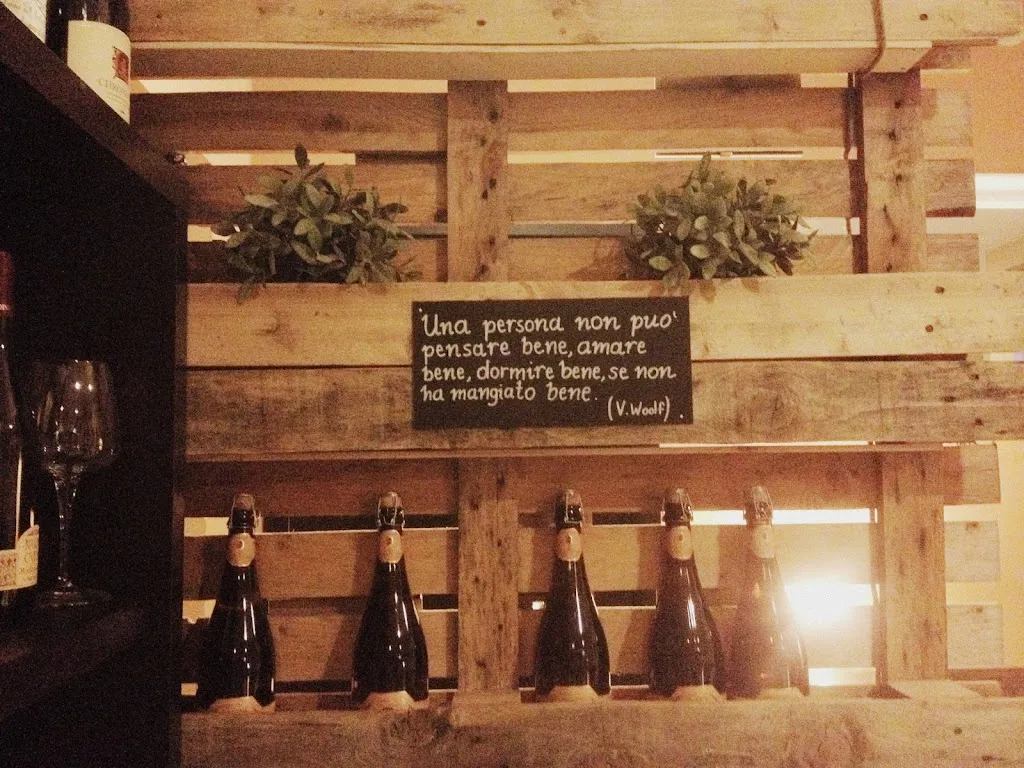 Una persona non puo'
pensare bene, amare
bene, dormire bene, se non
ha mangiato bene.
(V. Woolf).